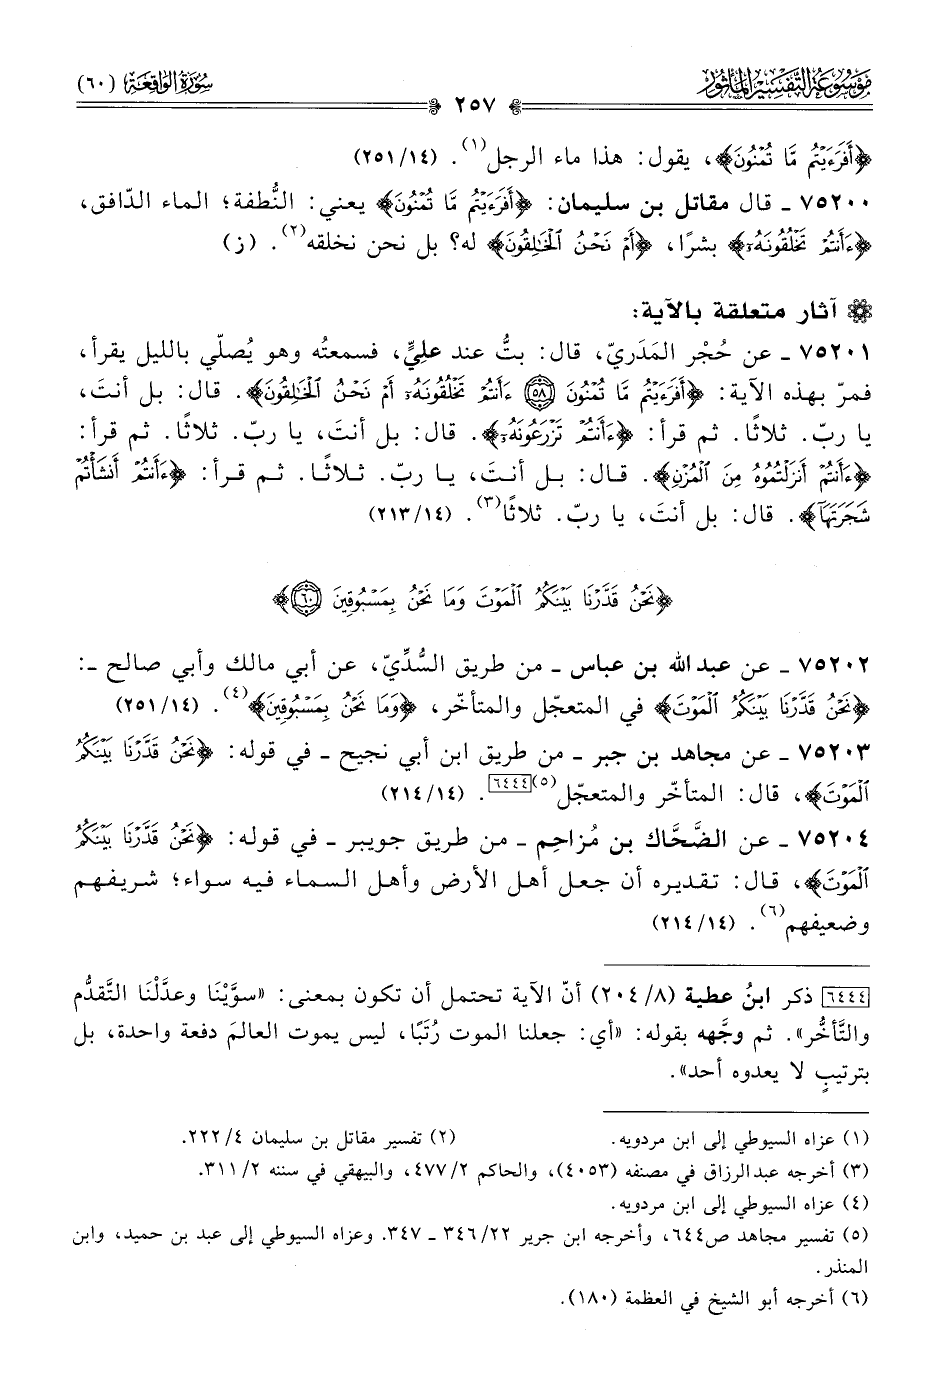 موسوعة التفسير المأثور
٢٥٧
سورة الواقعة (٦٠)
﴿أَفَرَءَيْتُم مَّا تُمْنُونَ﴾، يقول: هذا ماء الرجل(١). (٢٥١/١٤)
٧٥٢٠٠ ـ قال مقاتل بن سليمان: ﴿أَفَرَءَيْتُم مَّا تُمْنُونَ﴾ يعني: النُّطفة؛ الماء الدّافق،
﴿ءَأَنتُمْ تَخْلُقُونَهُۥٓ﴾ بشرًا، ﴿أَمْ نَحْنُ الْخَالِقُونَ﴾ له؟ بل نحن نخلقه(٢). (ز)
آثار متعلقة بالآية:
٧٥٢٠١ ـ عن حُجْر المَدَريّ، قال: بتُّ عند عليٍّ، فسمعتُه وهو يُصلّي بالليل يقرأ،
فمرّ بهذه الآية: ﴿أَفَرَءَيْتُم مَّا تُمْنُونَ ٥٨ ءَأَنتُمْ تَخْلُقُونَهُۥٓ أَمْ نَحْنُ الْخَالِقُونَ﴾. قال: بل أنتَ،
يا ربّ. ثلاثًا. ثم قرأ: ﴿ءَأَنتُمْ تَزْرَعُونَهُۥٓ﴾. قال: بل أنتَ، يا ربّ. ثلاثًا. ثم قرأ:
﴿ءَأَنتُمْ أَنزَلْتُمُوهُ مِنَ الْمُزْنِ﴾. قال: بل أنتَ، يا ربّ. ثلاثًا. ثم قرأ: ﴿ءَأَنتُمْ أَنشَأْتُمْ
شَجَرَتَهَآ﴾. قال: بل أنتَ، يا ربّ. ثلاثًا(٣). (٢١٣/١٤)
﴿نَحْنُ قَدَّرْنَا بَيْنَكُمُ الْمَوْتَ وَمَا نَحْنُ بِمَسْبُوقِينَ ٦٠﴾
٧٥٢٠٢ ـ عن عبد الله بن عباس ـ من طريق السُّدِّيّ، عن أبي مالك وأبي صالح ـ:
﴿نَحْنُ قَدَّرْنَا بَيْنَكُمُ الْمَوْتَ﴾ في المتعجّل والمتأخّر، ﴿وَمَا نَحْنُ بِمَسْبُوقِينَ﴾(٤). (٢٥١/١٤)
٧٥٢٠٣ ـ عن مجاهد بن جبر ـ من طريق ابن أبي نجيح ـ في قوله: ﴿نَحْنُ قَدَّرْنَا بَيْنَكُمُ
الْمَوْتَ﴾، قال: المتأخّر والمتعجّل(٥)[٦٤٤٤]. (٢١٤/١٤)
٧٥٢٠٤ ـ عن الضَّحَّاك بن مُزاحِم ـ من طريق جويبر ـ في قوله: ﴿نَحْنُ قَدَّرْنَا بَيْنَكُمُ
الْمَوْتَ﴾، قال: تقديره أن جعل أهل الأرض وأهل السماء فيه سواء؛ شريفهم
وضعيفهم(٦). (٢١٤/١٤)
[٦٤٤٤] ذكر ابنُ عطية (٢٠٤/٨) أنّ الآية تحتمل أن تكون بمعنى: «سوَّيْنَا وعدَّلْنَا التَّقدُّم
والتَّأخُّر». ثم وجَّهه بقوله: «أي: جعلنا الموت رُتَبًا، ليس يموت العالمَ دفعة واحدة، بل
بترتيبٍ لا يعدوه أحد».
(١) عزاه السيوطي إلى ابن مردويه. (٢) تفسير مقاتل بن سليمان ٤/ ٢٢٢.
(٣) أخرجه عبدالرزاق في مصنفه (٤٠٥٣)، والحاكم ٢/ ٤٧٧، والبيهقي في سننه ٢/ ٣١١.
(٤) عزاه السيوطي إلى ابن مردويه.
(٥) تفسير مجاهد ص٦٤٤، وأخرجه ابن جرير ٢٢/ ٣٤٦ ـ ٣٤٧. وعزاه السيوطي إلى عبد بن حميد، وابن
المنذر.
(٦) أخرجه أبو الشيخ في العظمة (١٨٠).